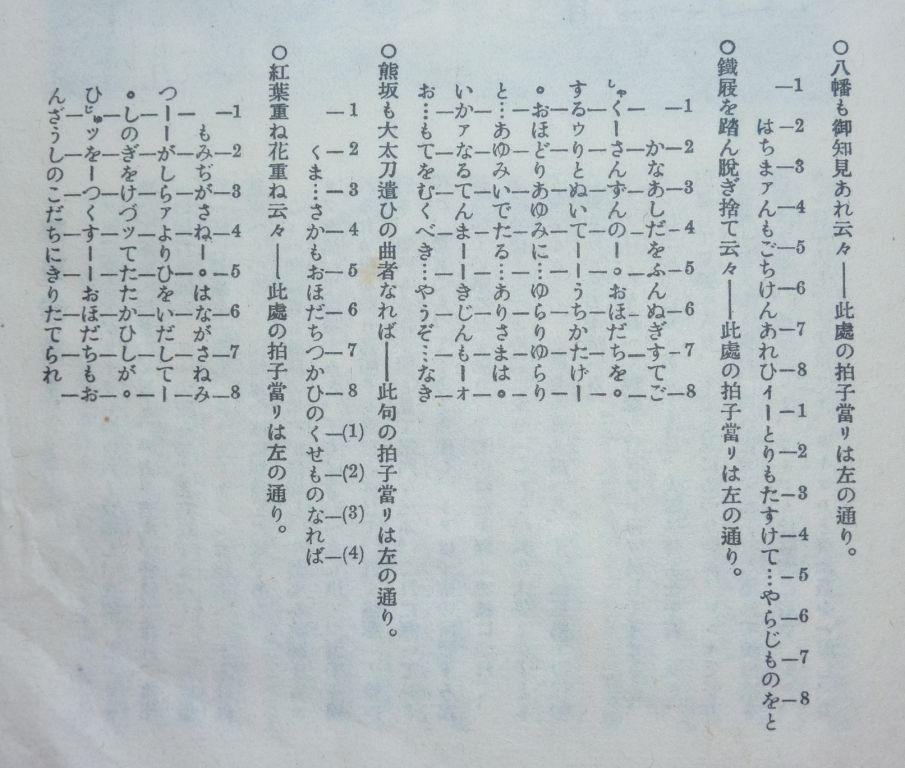 〇八幡も御知見あれ云々――此處の拍子當リは左の通り。
1 2 3 4 5 6 7 8 1 2 3 4 5 6 7 8
はちまァんもごちけんあれひィーとりもたすけて…やらじものをと
〇鐵屐を踏ん脫ぎ捨て云々――此處の拍子當リは左の通り。
1 2 3 4 5 6 7 8
かなあしだをふんぬぎすてご
しゃくーさんずんのー。おほだちを。
するゥりとぬいてーーうちかたげー
。おほどりあゆみに…ゆらりゆらり
と…あゆみいでたる…ありさまは。
いかァなるてんまーーきじんもーォ
お…もてをむくべき…やうぞ…なき
〇熊坂も大太刀遣ひの曲者なれば――此句の拍子當リは左の通り。
1 2 3 4 5 6 7 8 (1) (2) (3) (4)
くま…さかもおほだちつかひのくせものなれば
〇紅葉重ね花重ね云々――此處の拍子當リは左の通り。
1 2 3 4 5 6 7 8
もみぢがさねー。はながさねみ
つーーがしらァよりひをいだしてー
。しのぎをけづッてたたかひしが。
ひじゅッをーつくすーーおほだちもお
んざうしのこだちにきりたてられ